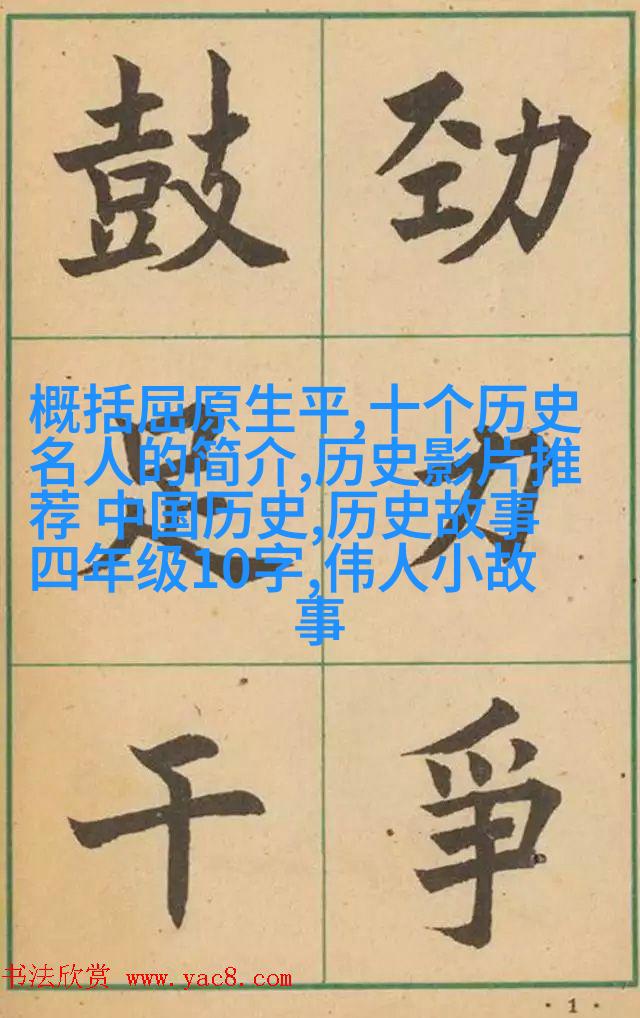 鼓劲
足力
干争
概括屈原生平,十个历史
名人的简介,历史影片推
荐 中国历史,历史故事
四年级10字,伟人小故
事
书法欣赏 www.yac8.com
· 1 ·